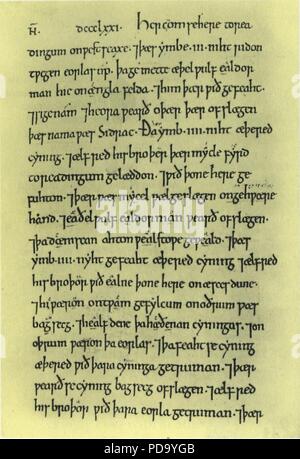 AN. DCCCLXXI. Her com se here to rea
dingum on ƿest seaxe. ⁊ þæs ymbe .III. niht ridon
tƿegen eorlas up. þa gemette æþelƿulf ealdor
man hie on engla felda. ⁊ him þær ƿið gefeaht.
⁊ sige nam. ⁊ heora ƿearð oþer þær ofslægen
þæs nama ƿæs Sidrac. Ða ymb .IIII. niht æþered
cyning. ⁊ ælfred his broþer þær mycle fyrd
to readingum gelæddon. ⁊ ƿið þone here ge
fuhton. ⁊ þær ƿæs mycel ƿæl geslægen on gehƿæþre
hand. ⁊ æðelƿulf ealdorman ƿearð ofslægen.
⁊ þa deniscan ahton ƿælstoƿe geƿeald. ⁊ þæs
ymb .IIII. nyht gefeaht æþered cyning ⁊ ælfred
his broþur ƿið ealne þone here on æsces dune.
⁊ hi ƿæron on tƿam gefylcum on oðrum ƿæs
bagsecg. ⁊ healfdene þa hæðenan cyningas. ⁊ on
oþrum ƿæron þa eorlas. ⁊ þa feaht se cyning
æþered ƿið þara cyninga getruman. ⁊ þær
ƿearð se cyning bagsecg ofslægen. ⁊ ælfred
his broþor ƿið þara eorla getruman. ⁊ þær
alamy
PD9YGB